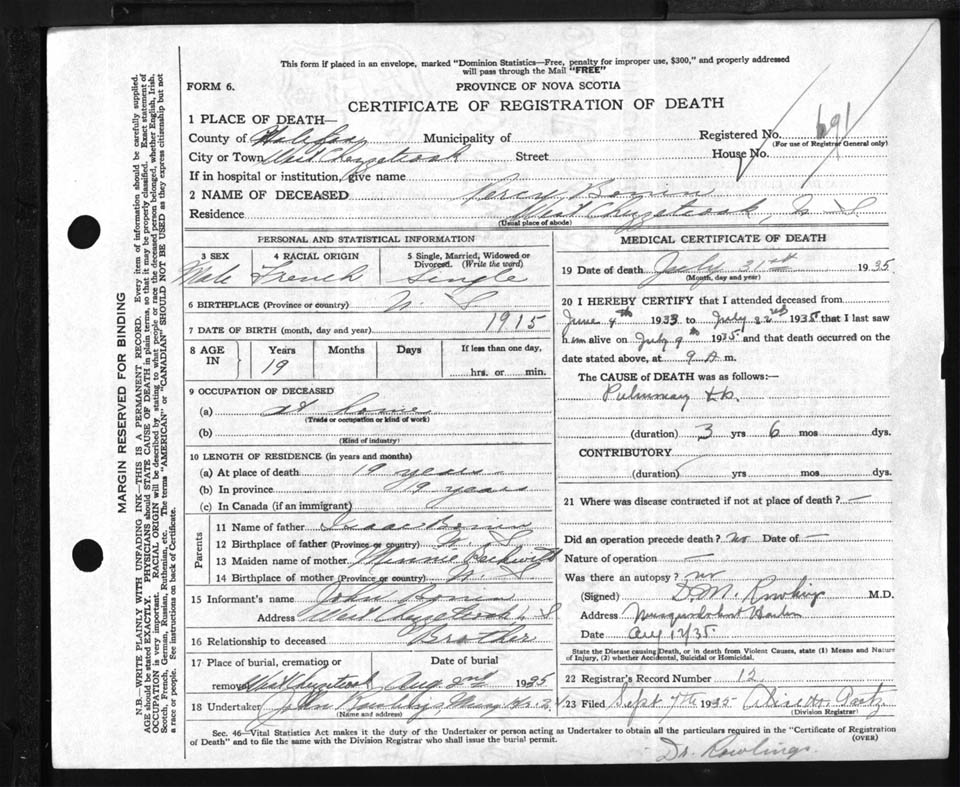 This form if placed in an envelope, marked "Dominion Statistics—Free, penalty for improper use, $300," and properly addressed
will pass through the Mail "FREE"
FORM 6.
PROVINCE OF NOVA SCOTIA
CERTIFICATE OF REGISTRATION OF DEATH
1 PLACE OF DEATH—
County of Halifax Municipality of Registered No. 691
(For use of Registrar General only)
City or Town West Chezetcook Street House No.
If in hospital or institution, give name
2 NAME OF DECEASED Percy Bonin
Residence West Chezetcook, N. S.
(Usual place of abode)
PERSONAL AND STATISTICAL INFORMATION
3 SEX 4 RACIAL ORIGIN 5 Single, Married, Widowed or Divorced. (Write the word)
Male French Single
6 BIRTHPLACE (Province or country) N. S.
7 DATE OF BIRTH (month, day and year) 1915
8 AGE IN Years Months Days If less than one day,
19 hrs. or min.
9 OCCUPATION OF DECEASED
(a) at home
(Trade or occupation or kind of work)
(b)
(Kind of industry)
10 LENGTH OF RESIDENCE (in years and months)
(a) At place of death 19 years
(b) In province 19 years
(c) In Canada (if an immigrant)
Parents
11 Name of father Isaac Bonin
12 Birthplace of father (Province or country) N. S.
13 Maiden name of mother Minnie Beckwith
14 Birthplace of mother (Province or country) N.
15 Informant's name John Bonin
Address West Chezetcook N S
16 Relationship to deceased Brother
17 Place of burial, cremation or removal West Chezetcook Date of burial Aug. 2nd 1935
18 Undertaker John
(Name and address)
MEDICAL CERTIFICATE OF DEATH
19 Date of death July 31st 1935
(Month, day and year)
20 I HEREBY CERTIFY that I attended deceased from
June 4th 1933 to July 22nd 1935 that I last saw
him alive on July 9th 1935 and that death occurred on the
date stated above, at 9 A m.
The CAUSE of DEATH was as follows:—
Pulmonary tb.
(duration) 3 yrs 6 mos dys.
CONTRIBUTORY
(duration) yrs mos dys.
21 Where was disease contracted if not at place of death? —
Did an operation precede death? no Date of —
Nature of operation —
Was there an autopsy? no
(Signed) D. M. Rowlings M.D.
Address Musquodoboit Harbor
Date Aug 12/35.
State the Disease causing Death, or in death from Violent Causes, state (1) Means and Nature
of Injury, (2) whether Accidental, Suicidal or Homicidal.
22 Registrar's Record Number 12
23 Filed Sept 4th 1935
(Division Registrar)
Sec. 46—Vital Statistics Act makes it the duty of the Undertaker or person acting as Undertaker to obtain all the particulars required in the "Certificate of Registration
of Death" and to file the same with the Division Registrar who shall issue the burial permit. (OVER)
Dr. Rowlings.
MARGIN RESERVED FOR BINDING
N.B.—WRITE PLAINLY WITH UNFADING INK—THIS IS A PERMANENT RECORD. Every item of information should be carefully supplied.
AGE should be stated EXACTLY. PHYSICIANS should STATE CAUSE OF DEATH in plain terms, so that it may be properly classified. Exact statement of
OCCUPATION is very important. RACIAL ORIGIN will be described by stating to what people or race the deceased person belonged, whether English, Irish,
Scotch, French, German, Russian, Ruthenian, etc. The terms "AMERICAN" or "CANADIAN" SHOULD NOT BE USED as they express citizenship but not
a race or people. See instructions on back of Certificate.